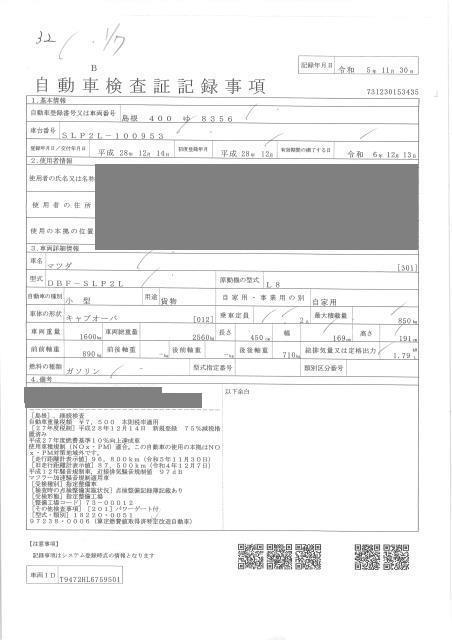 32
1/7
B
記録年月日 令和 5年 11月 30日
自動車検査証記録事項
731230153435
1.基本情報
自動車登録番号又は車両番号 島根 400 ゆ 8356
車台番号 SLP2L-100953
登録年月日/交付年月日 平成 28年 12月 14日 初度登録年月 平成 28年 12月 有効期間の満了する日 令和 6年 12月 13日
2.使用者情報
使用者の氏名又は名称
使用者の住所
使用の本拠の位置
3.車両詳細情報
車名 マツダ [301]
型式 DBF-SLP2L 原動機の型式 L8
自動車の種別 小型 用途 貨物 自家用・事業用の別 自家用
車体の形状 キャブオーバ [012] 乗車定員 2人 最大積載量 850kg
車両重量 1600kg 車両総重量 2560kg 長さ 450cm 幅 169cm 高さ 191cm
前前軸重 890kg 前後軸重 -kg 後前軸重 -kg 後後軸重 710kg 総排気量又は定格出力 1.79 kW L
燃料の種類 ガソリン 型式指定番号 類別区分番号
4.備考
以下余白
[島根], 継続検査
自動車重量税額 ¥7,500 本則税率適用
[27年度税制]平成28年12月14日 新規登録 75%減税措置済み
平成27年度燃費基準10%向上達成車
使用車種規制(NOx・PM)適合, この自動車の使用の本拠はNOx・PM対策地域外です。
[走行距離計表示値]96,800km(令和5年11月30日)
[旧走行距離計表示値]87,500km(令和4年12月7日)
平成12年騒音規制車, 近接排気騒音規制値 97dB
マフラー加速騒音規制適用車
[受検種別]指定整備車
[検査時の点検整備実施状況]点検整備記録簿記載あり
[受検形態]指定整備工場
[整備工場コード]73-00012
[その他検査事項][201]パワーゲート付
[型式・類別]18220・0051
97238・0006(算定燃費値取得済特定改造自動車)
[注意事項]
記録事項はシステム登録時点の情報となります
車両ID T9472HL6759501